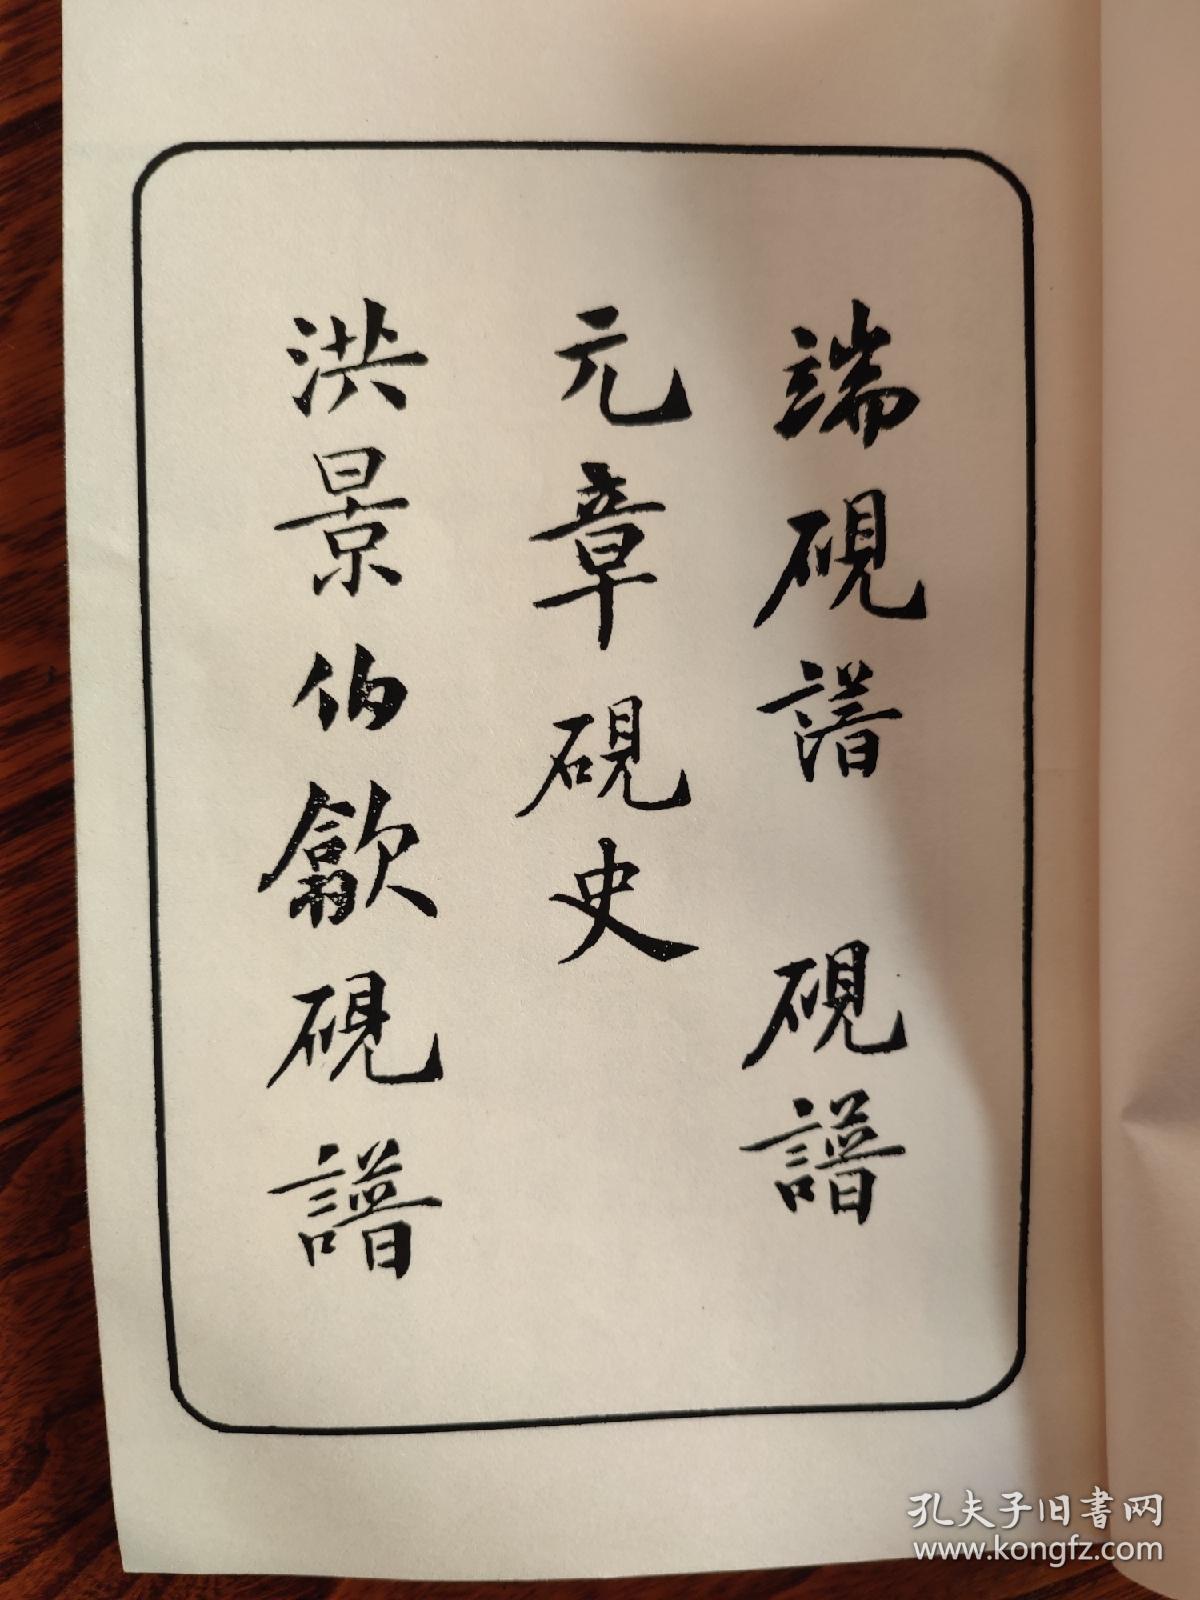 端硯譜 硯譜
元章硯史
洪景伯歙硯譜
孔夫子旧書网
www.kongfz.com